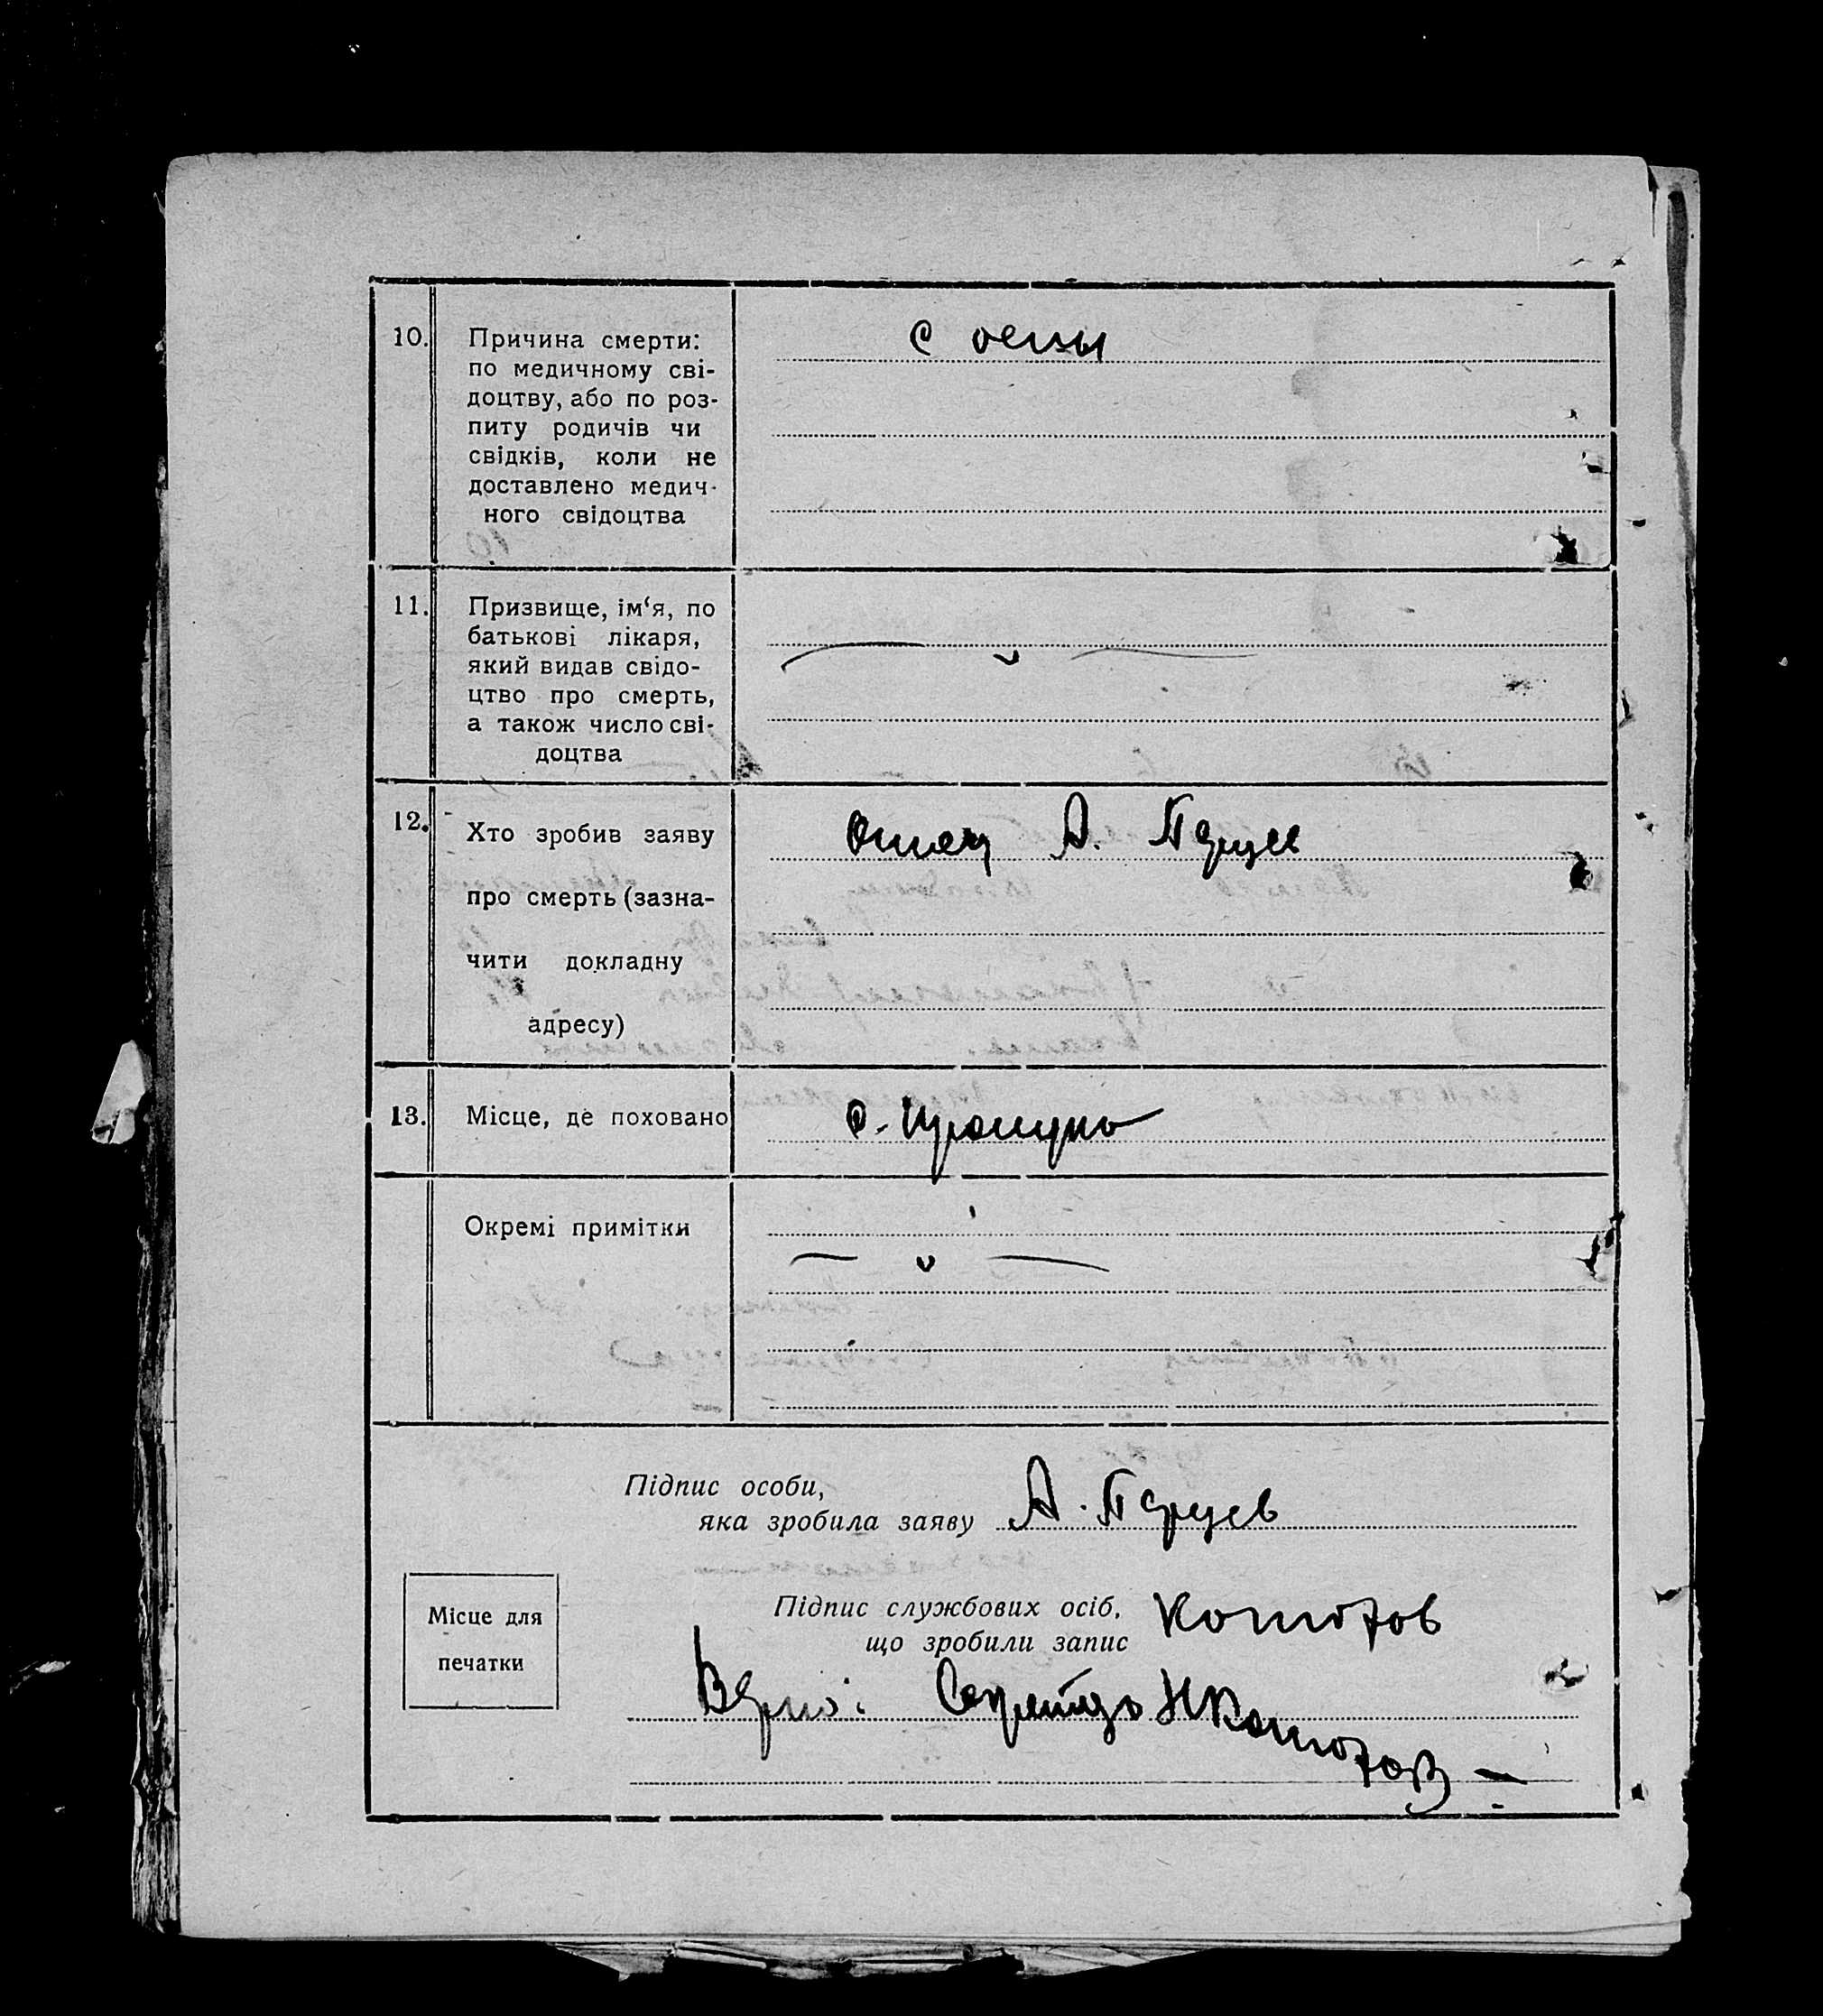 10. Причина смерти:
по медичному сві-
доцтву, або по роз-
питу родичів чи
свідків, коли не
доставлено медич-
ного свідоцтва
с оспы
11. Призвище, ім‘я, по
батькові лікаря,
який видав свідо-
цтво про смерть,
а також число сві-
доцтва
12. Хто зробив заяву
про смерть (зазна-
чити докладну
адресу)
Отец А. Перцев
13. Місце, де поховано
Окремі примітки
Підпис особи,
яка зробила заяву А. Перцев
Місце для
печатки
Підпис службових осіб,
що зробили запис
Котов
Верно: